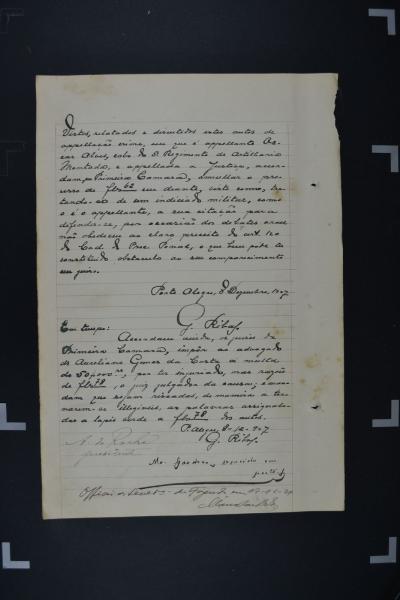 Vistos, relatados e discutidos estes autos de
appellação crime, em que é appellante Os-
car Alves, cabo do 5º Regimento de Artilharia
Montada, e appellada a Justiça, accor-
dam, em Primeira Camara, annullar o pro-
cesso de fls 62 em diante, visto como, tra-
tando-se de um indiciado militar, como
o é o appellante, a sua citação para
defender-se, por occasião dos debates
não obedeceu ao claro preceito do art. 120
do Cod. do Proc. Penal, o que bem pode ter
constituido obstaculo ao seu comparecimento
em juizo.
Porto Alegre, 8 Dezembro, 907
G. Ribas.
Em tempo:
Accordam ainda, os juizes da
Primeira Camara, impôr ao advogado
Aureliano da Costa a multa
de 50,000 rs, por ter injuriado, nas razões
de fls 78, o juiz julgador da causa; e man-
dam que sejam riscadas, de maneira a tor-
narem-se illegiveis, as palavras assignala-
das a lapis verde a fls 78 dos autos.
P. Alegre 8-12-907
G. Ribas.
A. da Rocha
presidente
vencido em
parte